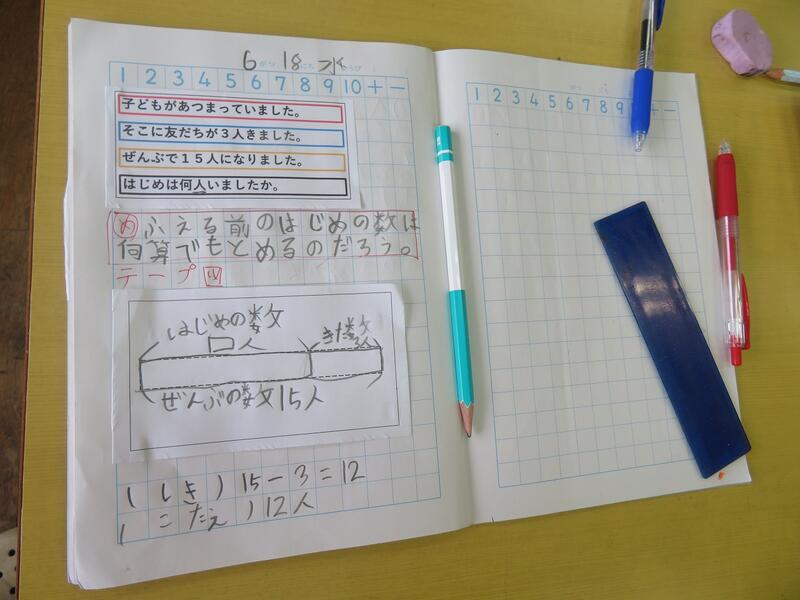 6がつ18にち水ようび
1 2 3 4 5 6 7 8 9 10 + −
子どもがあつまっていました。
そこに友だちが3人きました。
ぜんぶで15人になりました。
はじめは何人いましたか。
めふえる前のはじめの数は
何算でもとめるのだろう。
テープ図
はじめの数
□人
きた数
3人
ぜんぶの数15人
(しき)15−3=12
(こたえ)12人
がつ にち
1 2 3 4 5 6 7 8 9 + −